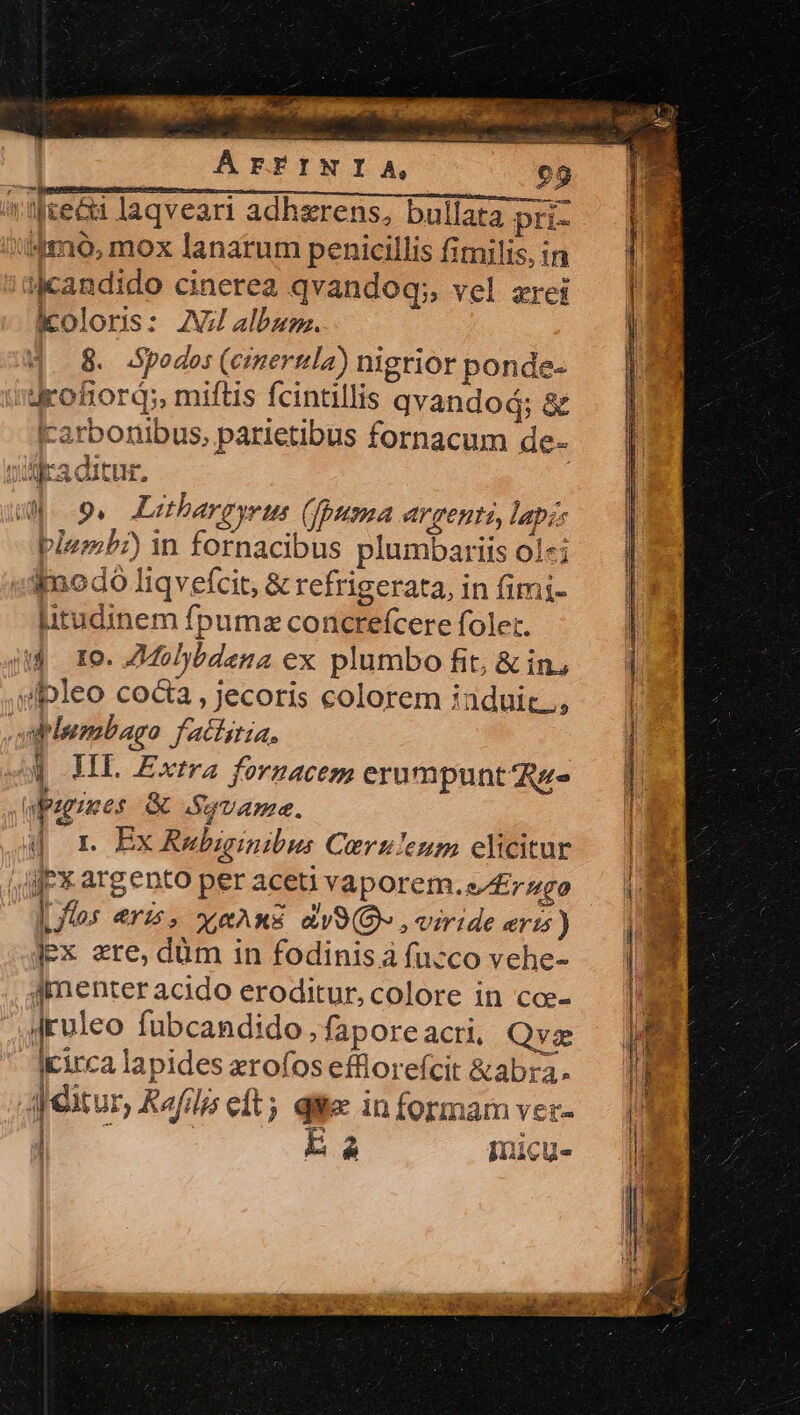 AFFINIA, 99
tecti laqveari adhærens, bullata pri-
mò, mox lanarum penicillis ſimilis, in
candido cinerea qvandoq;, vel ærei
coloris: Nil album.
8. Spodos (cinerula) nigrior ponde-
roſiorq́;, miſtis ſcintillis qvandoq́; &
carbonibus, parietibus fornacum de-
raditur.
9. Lithargyrus (ſpuma argenti, lapis
plumbi) in fornacibus plumbariis olei
modò liqveſcit, & refrigerata, in ſimi-
litudinem ſpumæ concreſcere ſolet.
10. Molybdena ex plumbo fit, & in
oleo cocta, jecoris colorem induit,
plumbago factitia.
III. Extra fornacem erumpunt Ru-
bigines & Squamæ.
1. Ex Rubiginibus Cæruleum elicitur
ex argento per aceti vaporem. Ærugo
flos æris, χαλκοῦ ἄνθος, viride æris)
ex ære, dùm in fodinis à ſucco vehe-
menter acido eroditur, colore in cœ-
ruleo ſubcandido, ſapore acri, Qvæ
circa lapides æroſos effloreſcit & abra-
ditur, Raſilis eſt; quæ in formam ver-
E 2 micu-